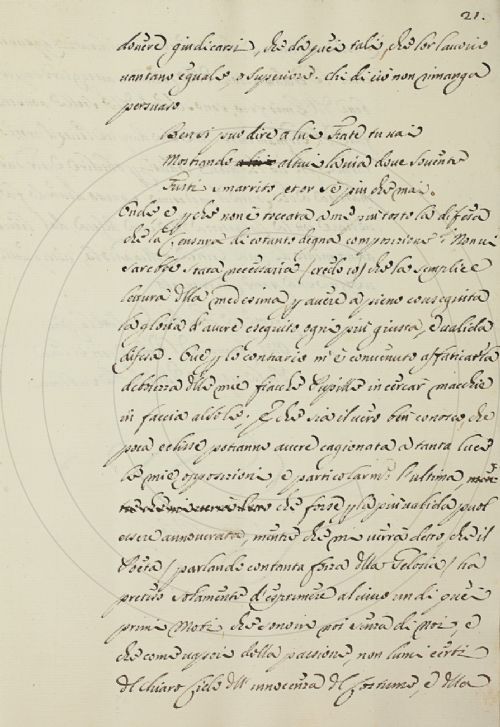 21.
douere giudicarsi, che da quei tali, che lor lauorio
uantano eguale, o superiore. chi di ciò non rimanga
persuaso
Ben si può dire a lui Frate tu uai
Mostrando altrui la uia doue souente
Fusti smarrito, et or se' più che mai.
Onde e perche non è toccata a me piu tosto la difesa
che la censura di cotanto degna composizione? Non ui
sarebbe stata necessaria (credo io) che la semplice
lettura della medesima per auere a pieno conseguita
la gloria d'auere eseguito ogni più giusta, e ualida
difesa. Oue per lo contrario m'è conuenuto affaticar la
debolezza delle mie fiacche Pupille in cercar macchie
in faccia al Sole; E che sia il uero ben conosco, che
poca eclisse potranno auere cagionata a tanta luce
le mie opposizioni, e particolarm.te l'ultima
che forse per la più ualida puol
essere annouerata, mentre che mi uerrà detto, che il
Poeta (parlando con tanta forza della Gelosia) ha
preteso solamente d'esprimere al uiuo un di quei
primi Moti, che sono in noi senza di Noi, e
che come uapori della passione, non lumi certi
del chiaro Cielo dell'innocenza del costume, e della